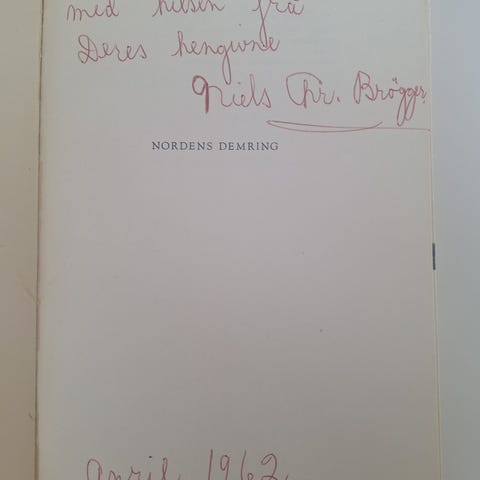 med hilsen frå
Deres hengivne
Niels Chr. Brøgger.
NORDENS DEMRING
April 1962.